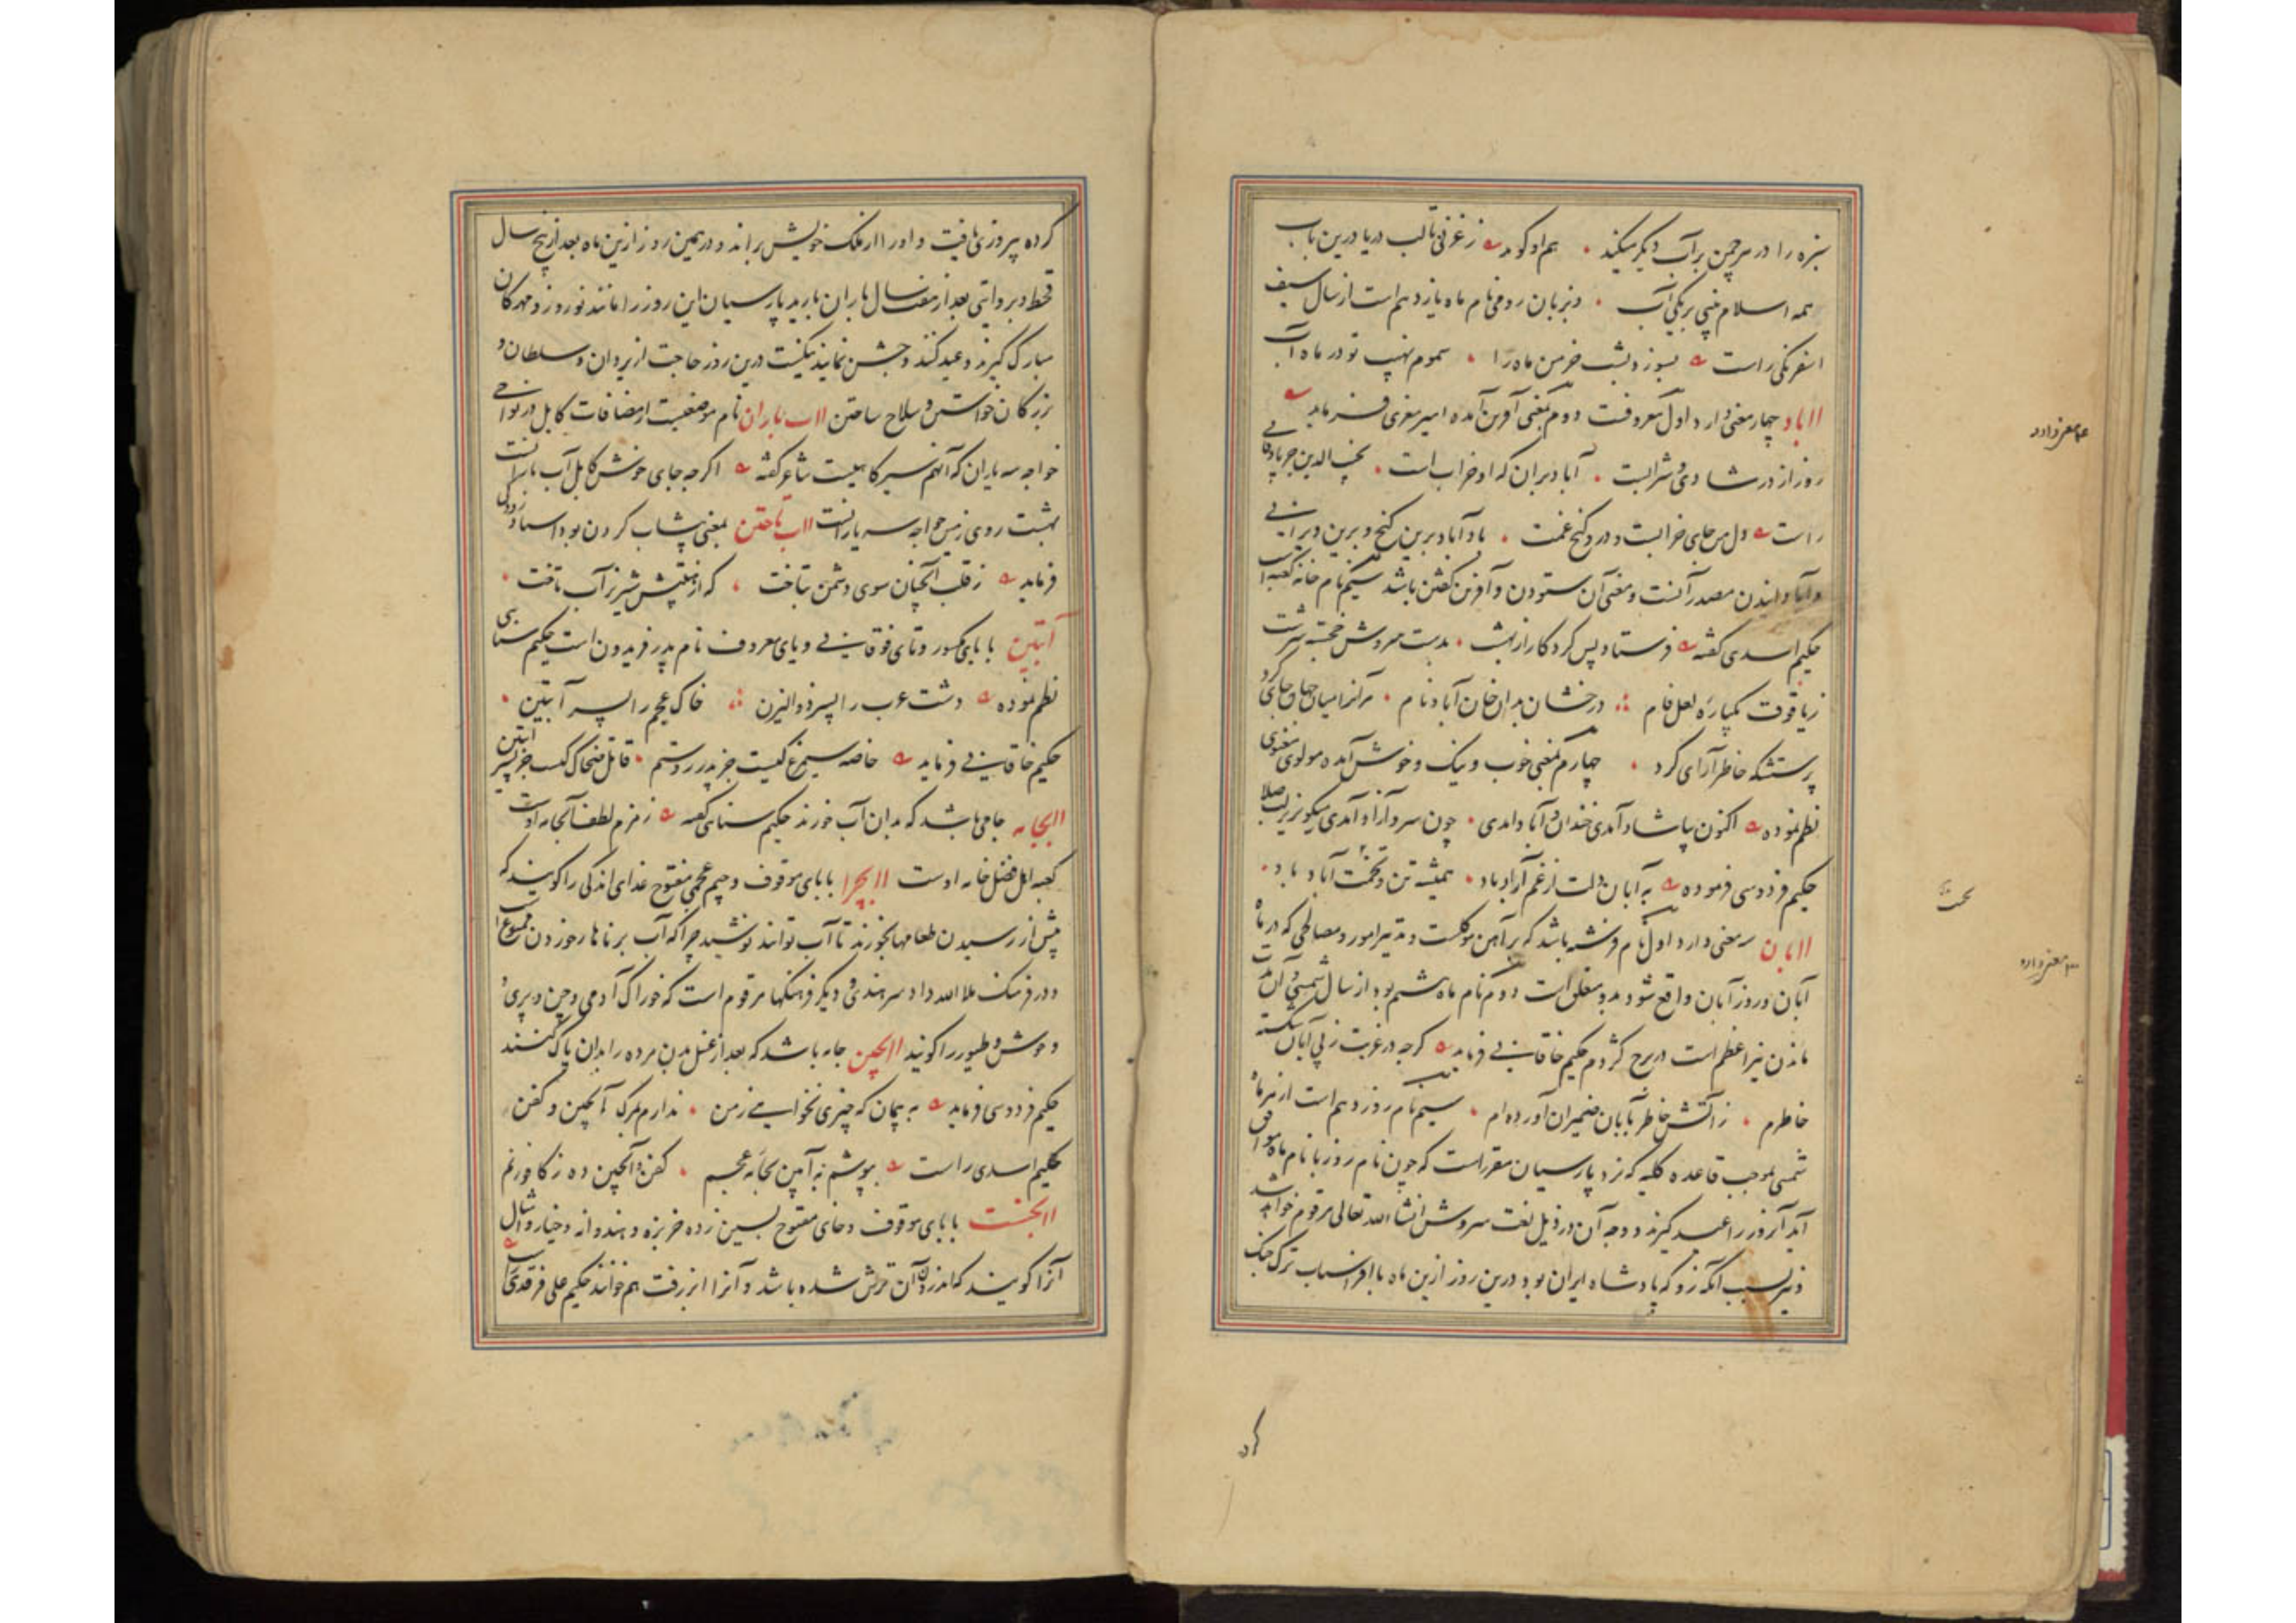 سبزه را در هر چمن بر آب دیگر میکند هم او گوید ز غزنی تا لب دریا درین باب
همه اسلام بینی بر یکی آب و بزبان رومی نام ماه یازدهم است از سال سیف
اسفرنگی راست بسوزد بشب خرمن ماه را سموم نهیب تو در ماه آب
آباد چهار معنی دارد اول معروفست دوم بمعنی آفرین آمده امیر معزی فرماید
روز از در شادی و شرابست آباد بران که او خراب است نجیب الدین جربادقانی
راست دل من جای خرابست و درو گنج غمت باد آباد برین گنج و برین ویرانی
و آبادانیدن مصدر آنست و معنی آن ستودن و آفرین گفتن باشد سیم نام خانه کعبه است
حکیم اسدی گفته فرستاد پس کردگار از بهشت بدست سروش خجسته سرشت
ز یاقوت یکپاره لعل فام درخشان بدان خان آباد نام مر آنرا میان جهان جای کرد
پرستشکه خاطر آرای کرد چهارم بمعنی خوب و نیک و خوش آمده مولوی معنوی
نظم نموده اکنون پاشاد آمدی خندان و آباد آمدی چون سرو آزاد آمدی میگو بزیر لب صلا
حکیم فردوسی فرموده به آبان دلت از غم آزاد باد همیشه تن و تخت آباد باد
آبان سه معنی دارد اول نام فرشته باشد که بر آهن موکلست و تدبیر امور و مصالحی که در ماه
آبان و روز آبان واقع شود بدو متعلق است دوم نام ماه هشتم بود از سال شمسی و آن مدت
ماندن نیر اعظم است در برج کژدم حکیم خاقانی فرماید گرچه در غربت ز بی آبان شکسته
خاطرم ز آتش خاطر بآبان ضمیران آورده‌ام سیم نام روز دهم است از هر ماه
شمسی بموجب قاعده کلیه که نزد پارسیان مقرر است که چون نام روز با نام ماه موافق
آید آنروز را عید گیرند و وجه آن در ذیل لغت سروش انشاء الله تعالی مرقوم خواهد شد
و نیز بسبب آنکه زو که پادشاه ایران بود درین روز ازین ماه با افراسیاب ترک جنگ
کرد
کرده پیروزی یافت و او را از ملک خویش براند و در همین روز ازین ماه بعد از پنج سال
قحط و بروایتی بعد از هفت سال باران بارید پارسیان این روز را مانند نوروز و مهرکان
مبارک گیرند و عید کنند و جشن نمایند نیکست درین روز حاجت از یزدان و سلطان و
بزرکان خواستن و سلاح ساختن آب باران نام موضعیست از مضافات کابل در نواحی
خواجه سه یاران که آنهم سیرکاهیست شاعر گفته اگرچه جای خوش کابل آب بارانست
بهشت روی زمین خواجه سه یارانست آب تاختن بمعنی پیشاب کردن بود استاد رودکی
فرماید ز قلب آنچنان سوی دشمن بتاخت که از هیبتش شیر نر آب تاخت
آبتین با بای مکسور و تای فوقانی و یای معروف نام پدر فریدون است حکیم سنایی
نظم نموده دشت عرب را پسر ذوالیزن خاک عجم را پسر آبتین
حکیم خاقانی فرماید خاصه سیمرغ کیست جز پدر روستم قاتل ضحاک کیست جز پسر آبتین
آبجامه جامی باشد که بدان آب خورند حکیم سنایی گفته زمزم لطف آبجامه اوست
کعبه اهل فضل خانه اوست آبچرا با بای موقوف و جیم عجمی مفتوح غذای اندکی را گویند که
پیش از رسیدن طعامها بخورند تا آب توانند نوشید چرا که آب بر ناهار خوردن ممنوع است
و در فرهنگ ملا الله داد سرهندی و دیگر فرهنگها مرقوم است که خوراک آدمی و جن و پری و
وحوش و طیور را گویند آبچین جامه باشد که بعد از غسل بدن مرده را بدان پاک کنند
حکیم فردوسی فرماید به پیمان که چیزی نخواهی ز من ندارم بمرگ آبچین و کفن
حکیم اسدی راست بپوشم به آیین بجامه عجم کفن و آبچین ده ز کافور نم
آبخست با بای موقوف و خای مفتوح بسین زده خربزه و هندوانه و خیار و امثال
آنرا گویند که اندرون آن ترش شده باشد و آنرا ابزرفت هم خوانند حکیم علی فرقدی